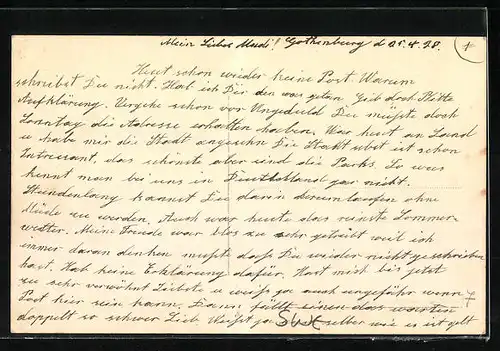 Mein Liebes Mudi! Gothenburg d 25.4.28. 1
Heut schon wieder keine Post. Warum
schreibst Du nicht. Hab ich Dir den was getan. Gib doch Bitte
Aufklärung. Vergehe schon vor Ungeduld Du müßte doch
Sonntag die Adresse erhalten haben. War heut an Land
u habe mir die Stadt angesehn Die Stadt selbst ist schon
Intressant, das schönste aber sind die Parks. So was
kennt man bei uns in Deutschland gar nicht.
Stundenlang kannst Du darin herumlaufen ohne
Müde zu werden. Auch war heute das reinste Sommer
wetter. Meine Freude war blos zu sehr getrübt weil ich
immer daran denken mußte daß Du wieder nicht geschrieben
hast. Hab keine Erklärung dafür. Hast mich bis jetzt
zu sehr verwöhnt Liebste u weiß ja auch ungefähr wenn
Post hier sein kann. Dann fällt einen das warten
doppelt so schwer Lieb Weißt ja selber wie es ist gelt